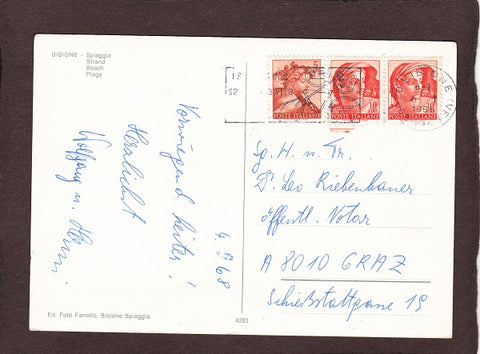 BIBIONE - Spiaggia
Strand
Beach
Plage
Vorwiegend heiter!
Herzlichst
Wolfgang u.
4. 9. 68
POSTE ITALIANE
POSTE ITALIANE
10
POSTE ITALIANE
10
Sp. H. u. Fr.
Dr. Leo Riebenbauer
öffentl. Notar
A 8010 GRAZ
Schießstattgasse 19
Ed. Foto Fanotto, Bibione Spiaggia
6283